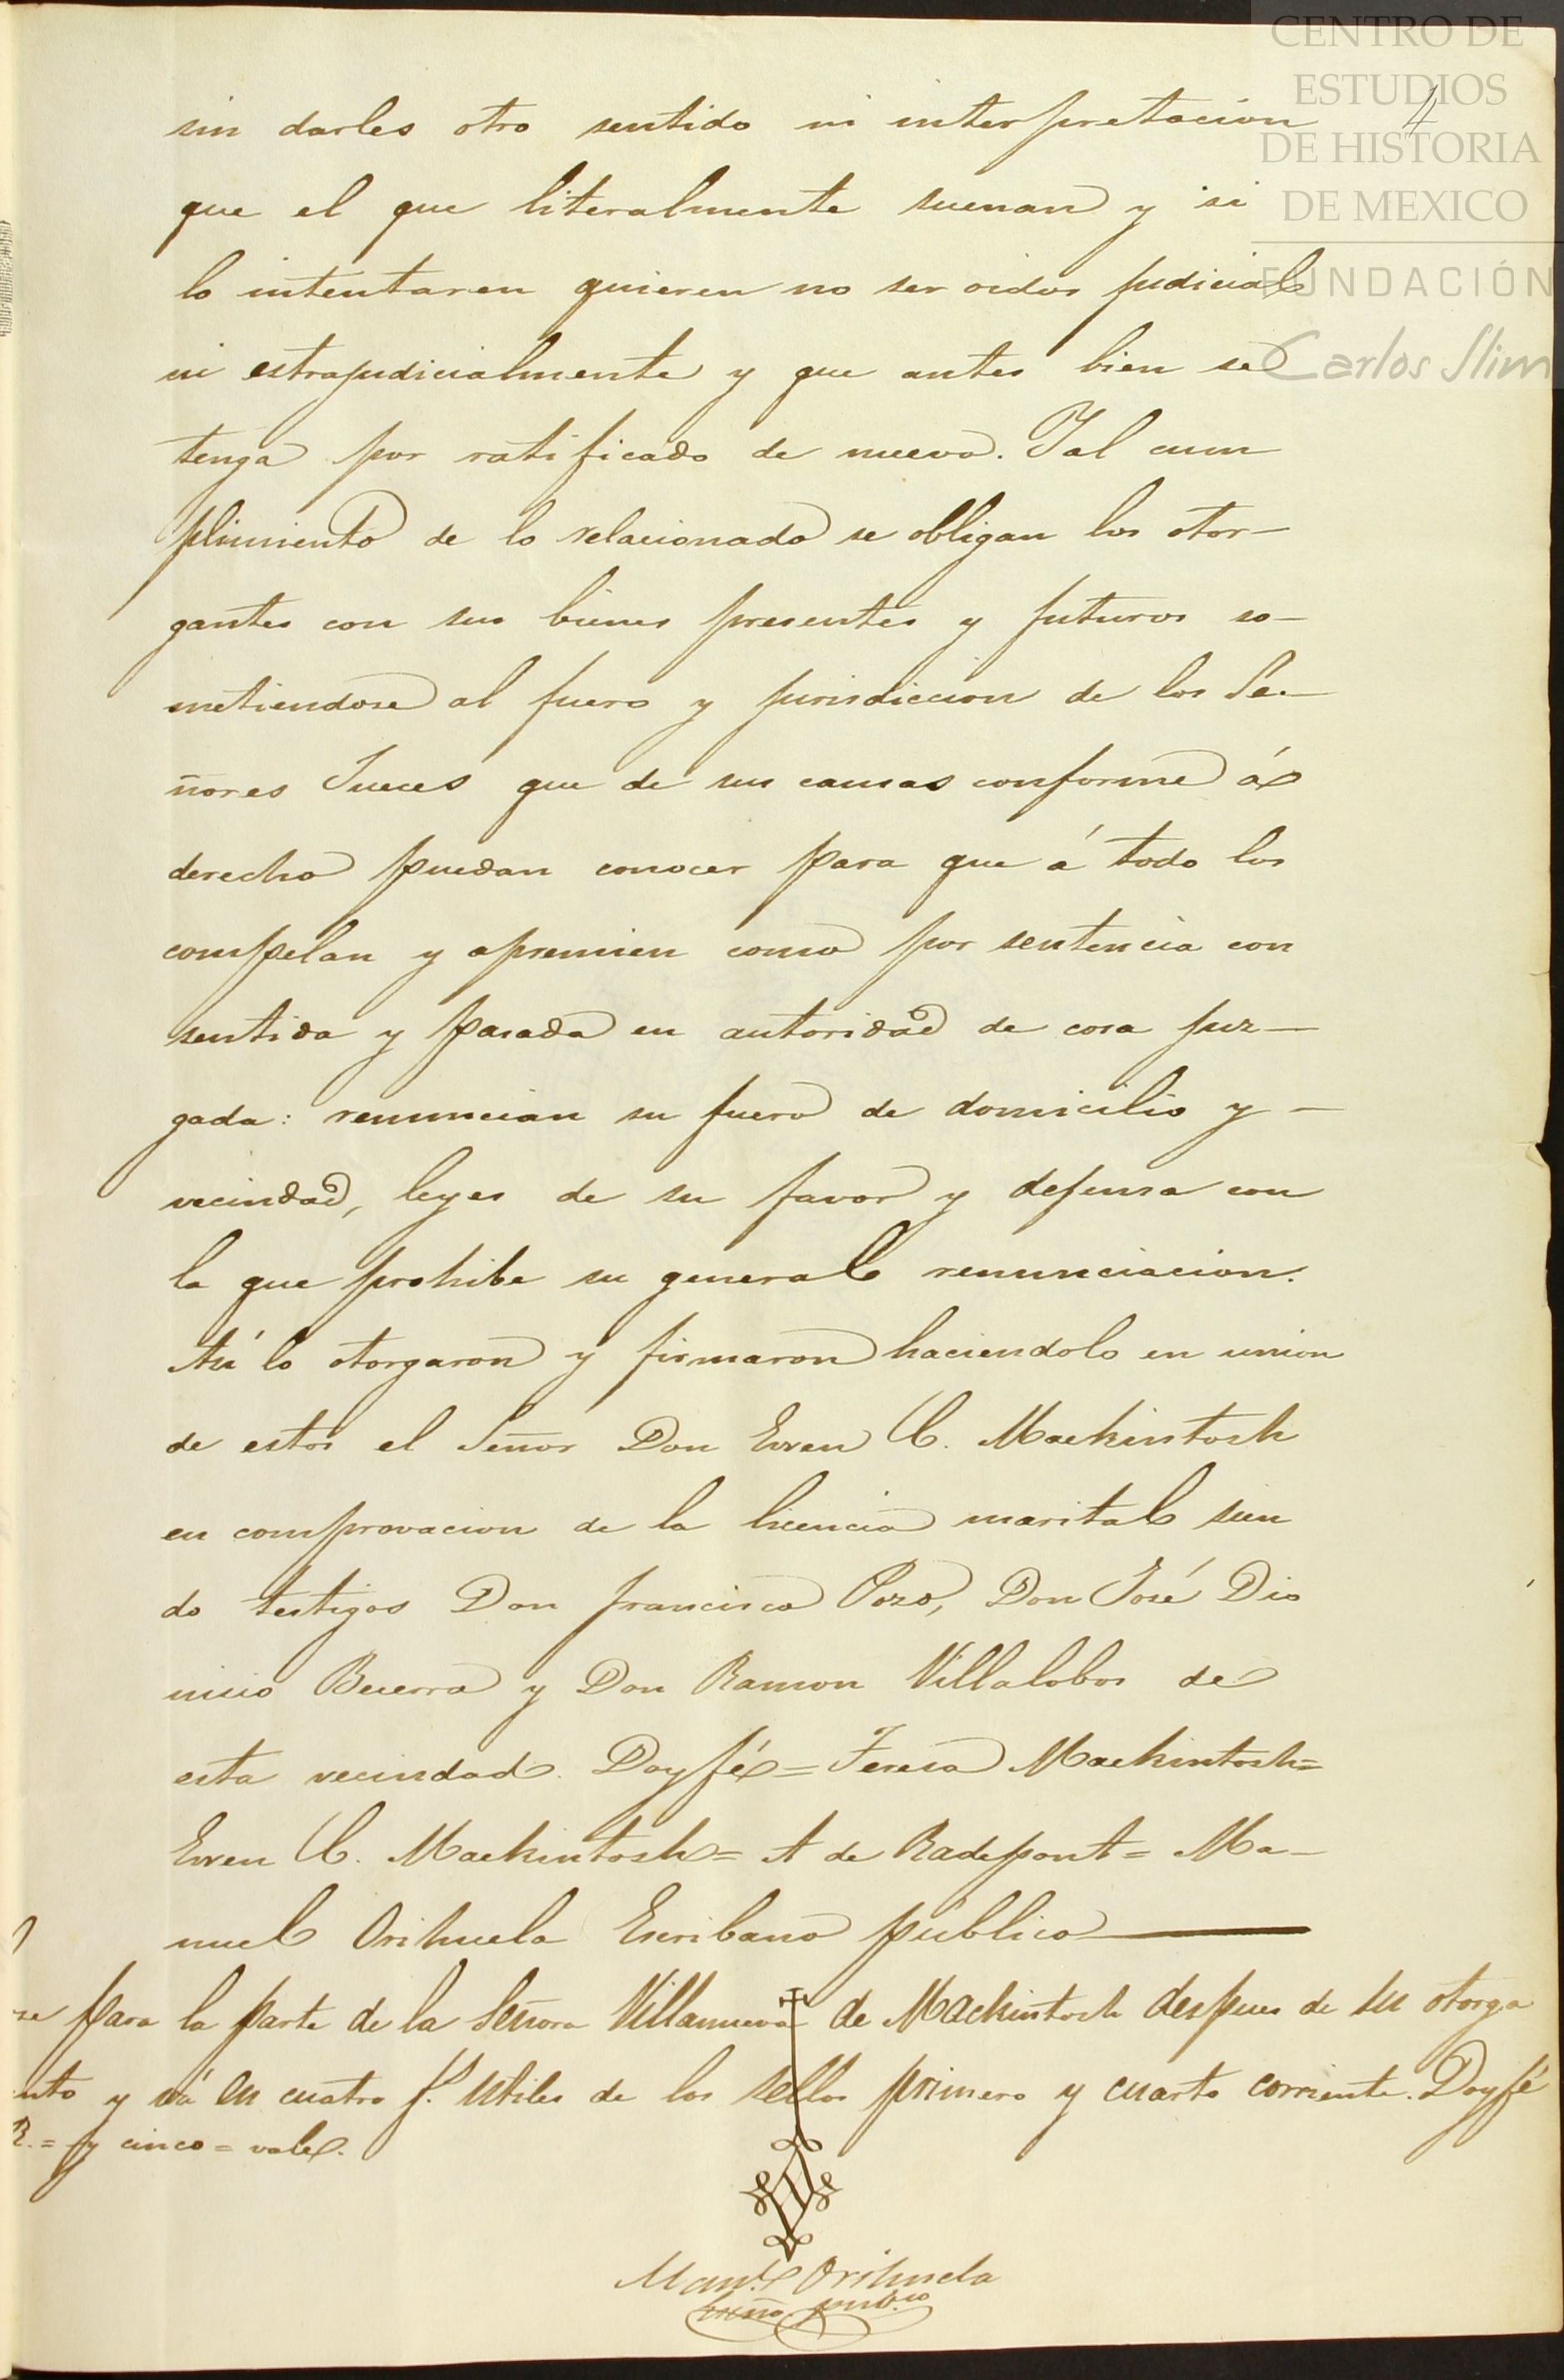 CENTRO DE
ESTUDIOS
DE HISTORIA
DE MEXICO
FUNDACIÓN
Carlos Slim
4
sin darles otro sentido ni interpretacion
que el que literalmente suenan y si
lo intentaren quieren no ser oidos judicial
ni estrajudicialmente y que antes bien se
tenga por ratificado de nuevo. Y al cum
plimiento de lo relacionado se obligan los otor-
gantes con sus bienes presentes y futuros so-
metiendose al fuero y jurisdiccion de los Se-
ñores Jueces que de sus causas conforme á
derecho puedan conocer para que á todo los
compelan y apremien como por sentencia con
sentida y pasada en autoridad de cosa juz-
gada: renuncian su fuero de domicilio y -
vecindad, leyes de su favor y defensa con
la que prohibe su general renunciacion.
Así lo otorgaron y firmaron haciendolo en union
de estos el Señor Don Ewen C. Mackintosh
en comprovacion de la licencia marital sien
do testigos Don Francisco Pozo, Don José Dio
nicio Becerra y Don Ramon Villalobos de
esta vecindad. Doy fé = Teresa Mackintosh =
Ewen C. Mackintosh = A de Radepont = Ma-
nuel Orihuela Escribano público
para la parte de la Señora Villanueva de Mackintosh despues de su otorga
nto y vá en cuatro f.s utiles de los sellos primero y cuarto corriente. Doy fé
R. = y cinco = vale.
Man.l Orihuela
esno púb.co